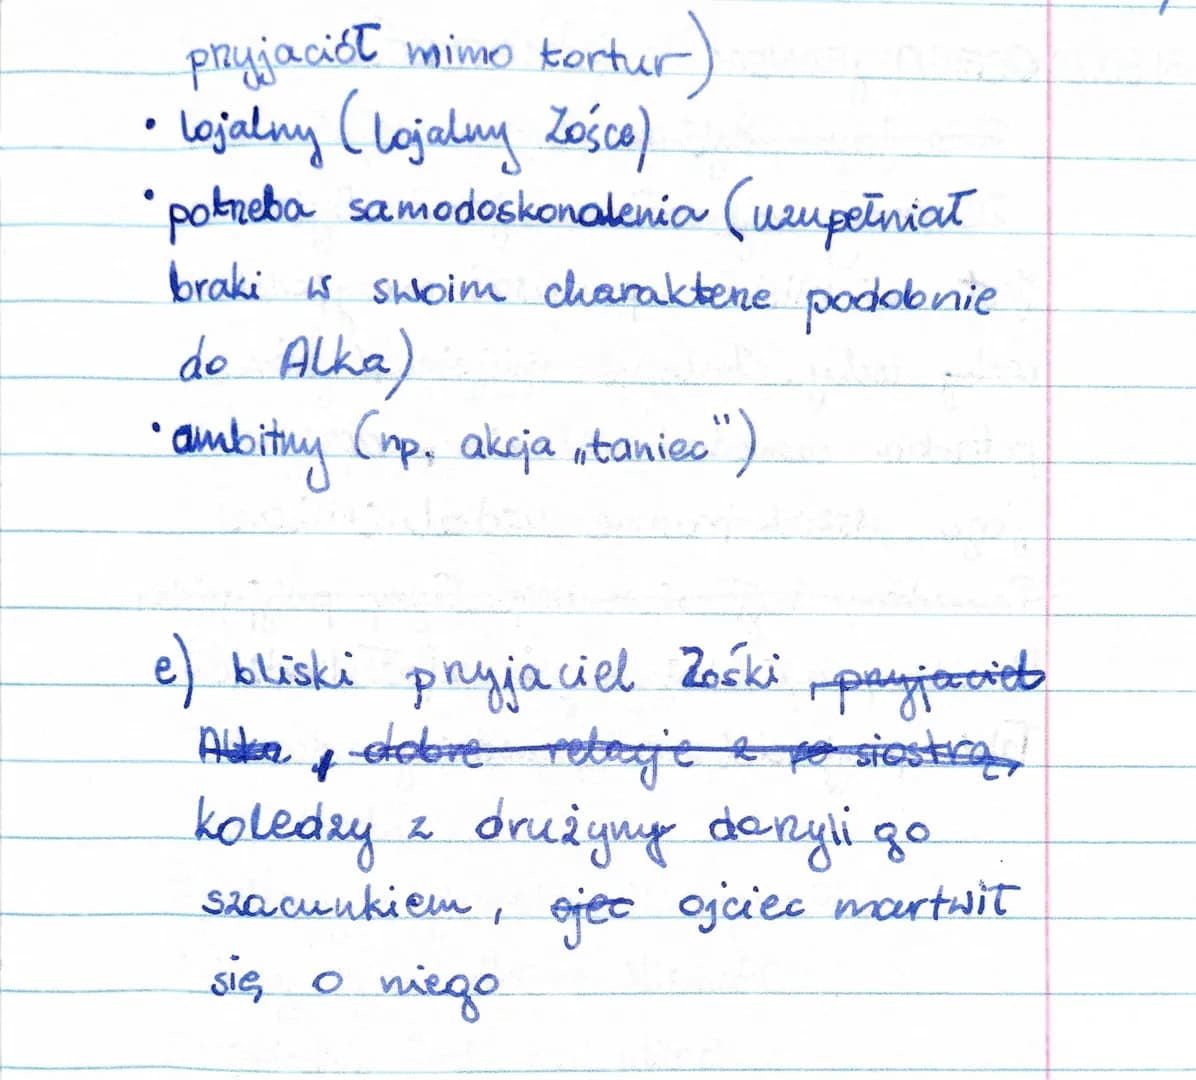 przyjaciół mimo tortur)
• lojalny (lojalny Zośce)
• potrzeba samodoskonalenia (uzupełniał
braki w swoim charakterze podobnie
do Alka)
• ambitny (np. akcja „taniec")
e) bliski przyjaciel Zośki, przyjaciel
Alka, dobre relacje z siostrą,
koledzy z drużyny darzyli go
szacunkiem, ojec ojciec martwił
się o niego